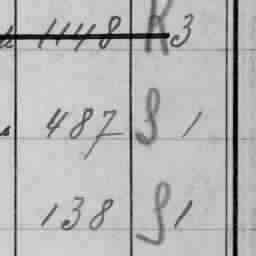 1148 K 3
487 S 1
138 S 1